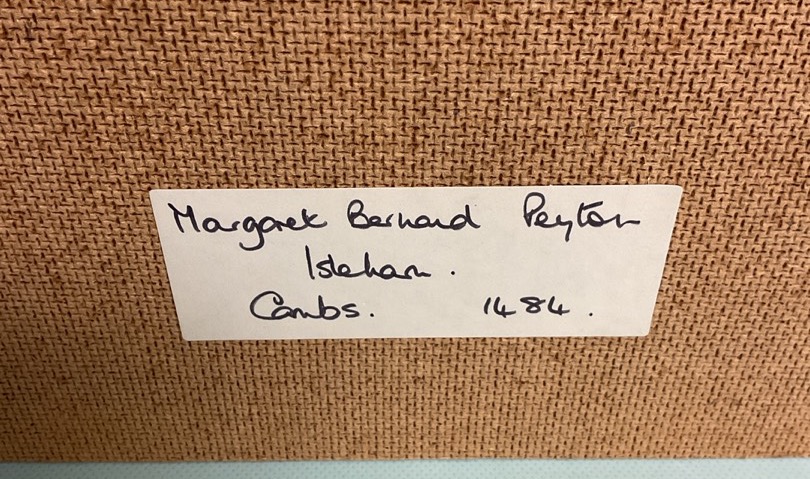 Margaret Bernard Peyton
Isleham.
Cambs. 1484.